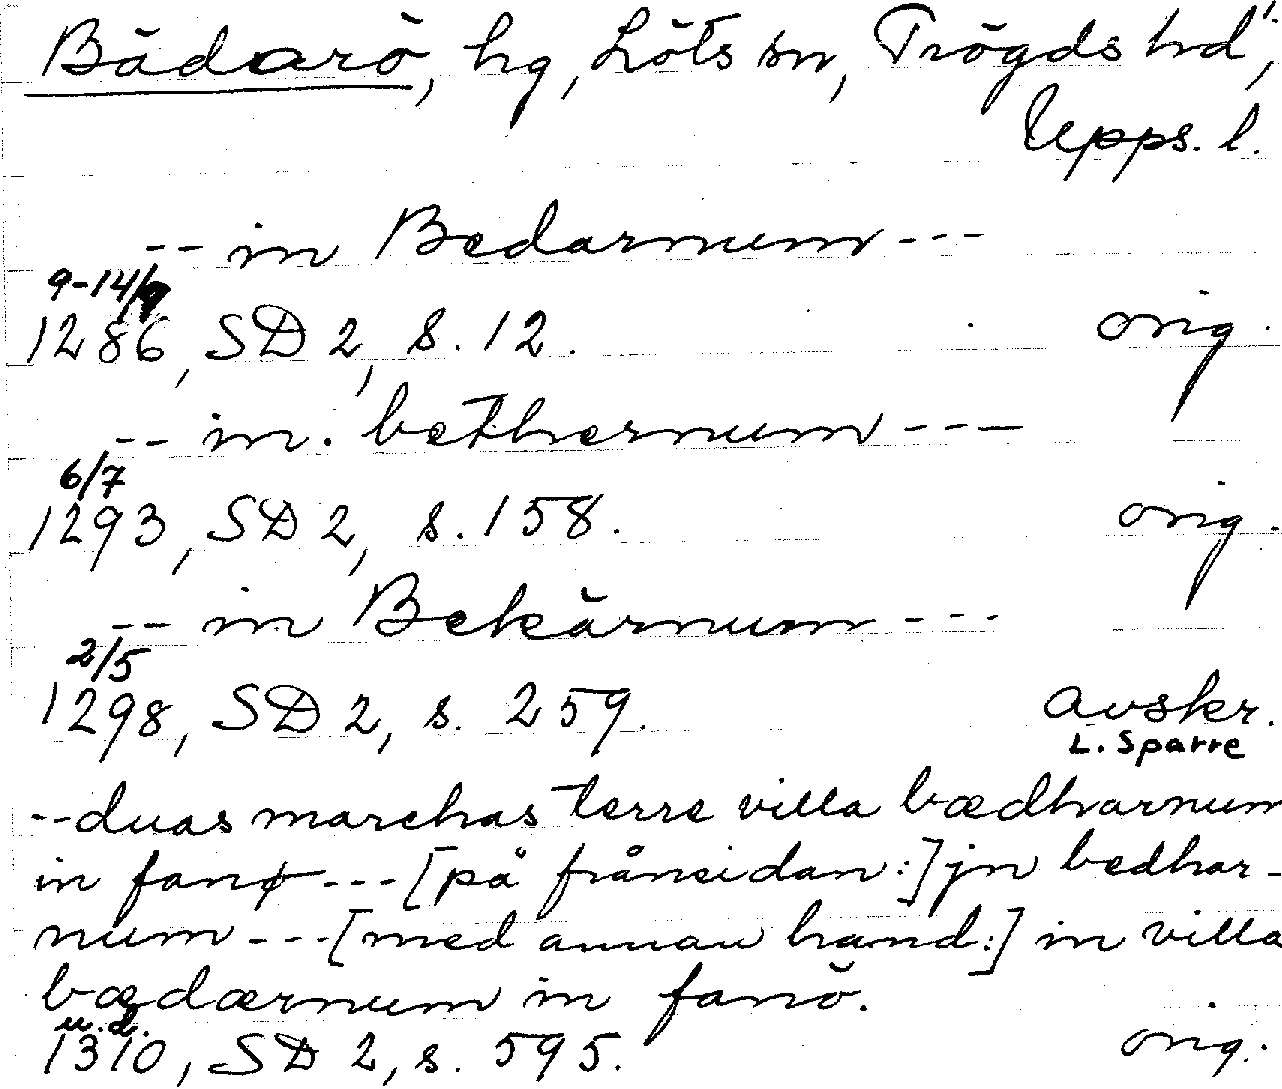 Bädarö, hg, Löts sn, Trögds hd,
Upps. l.
-- in Bedarnum ---
9-14/9
1286, SD 2, s. 12. orig.
-- in. bethernum ---
6/7
1293, SD 2, s. 158. orig.
-- in Bekärnum ---
2/5
1298, SD 2, s. 259. avskr.
L. Sparre
--duas marchas terre villa bædharnum
in fanø --- [på frånsidan:] jn bedhar-
num --- [med annan hand:] in villa
bædærnum in fanö.
u.d.
1310, SD 2, s. 595. orig.